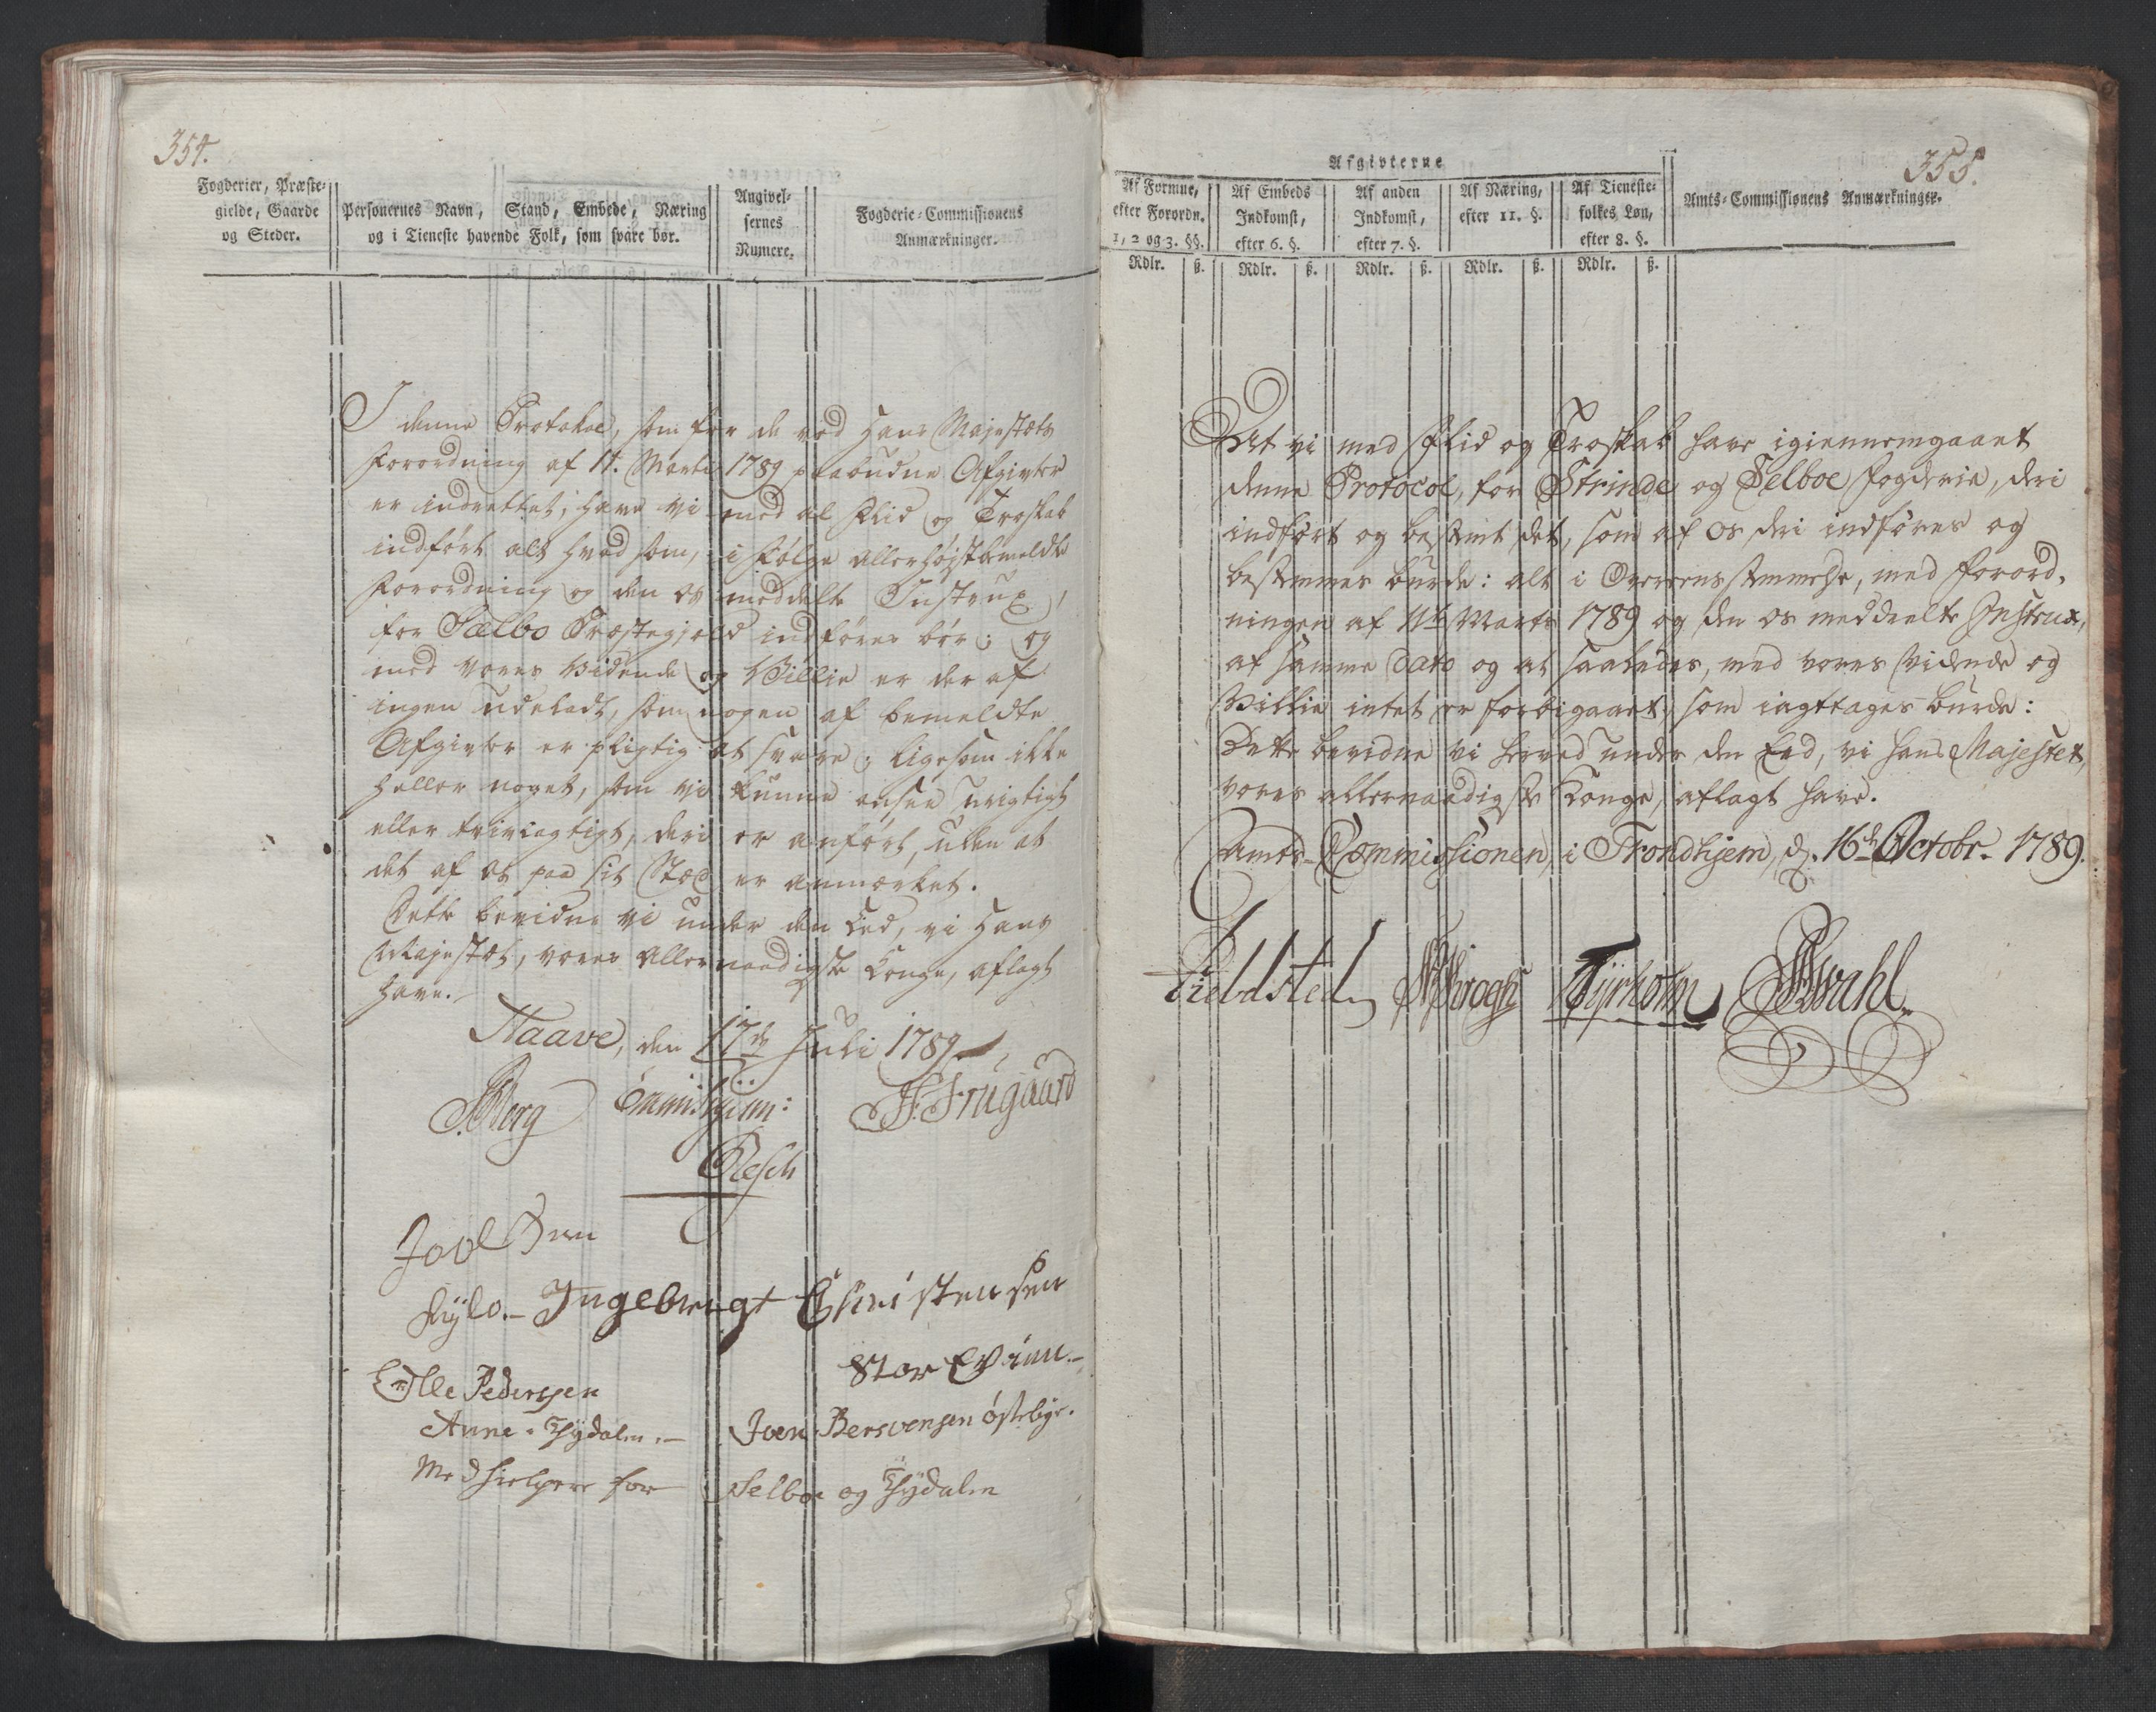 354.
Fogderier, Præste-
gielde, Gaarde
og Steder.
Personernes Navn, Stand, Embede, Næring
og i Tieneste havende Folk, som svare bør.
Angivel-
sernes
Numere.
Fogderie-Commissionens
Anmærkninger.
I denne Protokol, som for de ved Hans Majestæts
Forordning af 11. Martii 1789 paabudne Afgivter
er indrettet, have vi med al Flid og Troskab
indført alt hvad som, i Følge allerhøjstbemeldte
Forordning og den os meddelte Instrux,
for Sælbo Præstegjæld indføres bør; og
med vores Vidende og Villie er der af
ingen udeladt, som nogen af bemeldte
Afgivter er pligtig at svare; ligesom ikke
heller noget, som vi kunne ansee urigtigt
eller tvivlagtigt, deri er anført, uden at
det af os paa sit Stæd er anmærket.
Dette bevidne vi under den Eed, vi Hans
Majestæt, vores Allernaadigste Konge, aflagt
have.
Naave, den 17de Juli 1789.
Berg
F: Trugaard
Resch
Joel
Ingebregt Christensen
Stor Evinn.
Olle Pedersen
Aune Thydalen.
Iver Bersvensen Østebye.
Medhielpere for Selboe og Thydalen
355.
Afgivterne
Af Formue,
efter Forordn.
1, 2 og 3. §§.
Af Embeds
Indkomst,
efter 6. §.
Af anden
Indkomst,
efter 7. §.
Af Næring,
efter 11. §.
Af Tieneste-
folkes Løn,
efter 8. §.
Amts-Commissionens Anmærkninger.
Rdlr. ß. Rdlr. ß. Rdlr. ß. Rdlr. ß. Rdlr. ß.
At vi med Flid og Troskab have igiennemgaaet
denne Protocol, for Strinde og Selboe Fogderie, deri
indført og bestemt det, som af os deri indføres og
bestemmes burde: alt i Overeensstemmelse, med Forord-
ningen af 11te Marts 1789 og den os meddeelte Instrux,
af samme Dato og at saaledes, med vores Vidende og
Villie intet er forbigaaet, som iagttages burde:
Dette bevidne vi herved under den Eed, vi Hans Majestet,
vores allernaadigste Konge, aflagt have.
Amts-Commissionen i Trondhjem, d. 16de Octobr. 1789.
Fieldsted Krogh Tyrholm Wahl